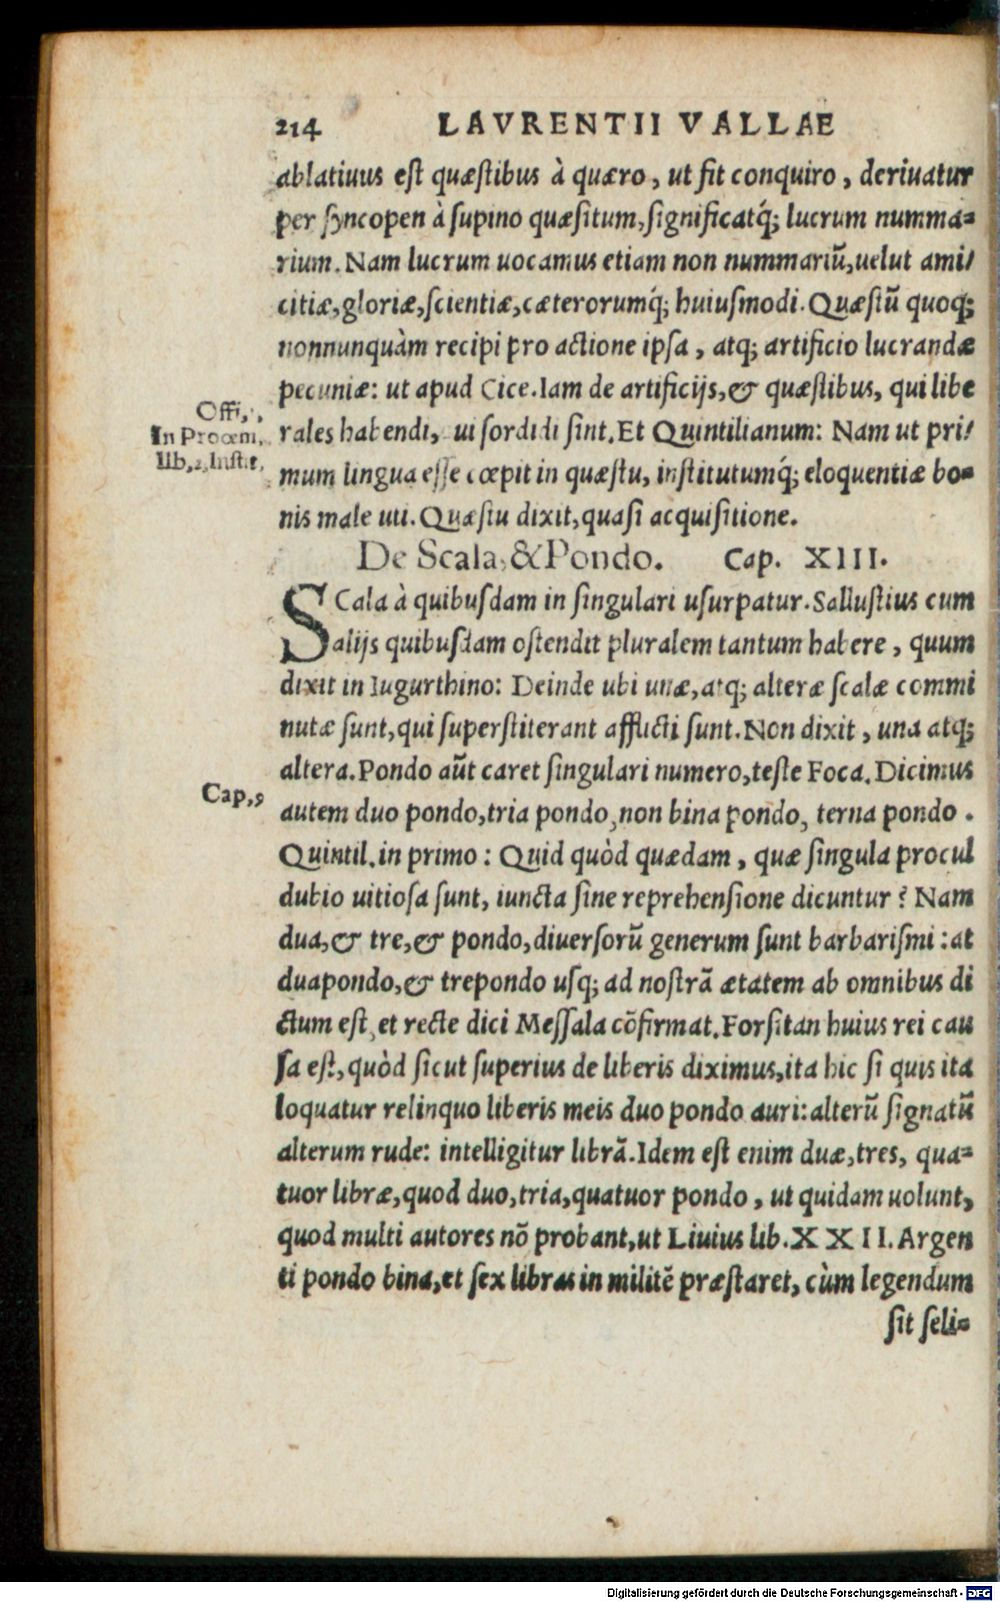 214 LAVRENTII VALLAE
ablatiuus est quæstibus à quæro, ut fit conquiro, deriuatur
per syncopen à supino quæsitum, significatq́; lucrum numma-
rium. Nam lucrum uocamus etiam non nummariũ, uelut ami/
citiæ, gloriæ, scientiæ, cæterorumq́; huiusmodi. Quæstũ quoq;
nonnunquàm recipi pro actione ipsa, atq; artificio lucrandæ
pecuniæ: ut apud Cice. Iam de artificijs, & quæstibus, qui libe
Offi,1,
In Procem,
lib,2,Instit,
rales habendi, ui sordidi sint. Et Quintilianum: Nam ut pri/
mum lingua esse cœpit in quæstu, institutumq́; eloquentiæ bo-
nis male uti. Quæstu dixit, quasi acquisitione.
De Scala, & Pondo. Cap. XIII.
SCala à quibusdam in singulari usurpatur. Sallustius cum
alijs quibusdam ostendit pluralem tantum habere, quum
dixit in Iugurthino: Deinde ubi unæ, atq; alteræ scalæ commi
nutæ sunt, qui superstiterant afflicti sunt. Non dixit, una atq;
altera. Pondo aũt caret singulari numero, teste Foca. Dicimus
Cap,9
autem duo pondo, tria pondo, non bina pondo, terna pondo.
Quintil. in primo: Quid quòd quædam, quæ singula procul
dubio uitiosa sunt, iuncta sine reprehensione dicuntur? Nam
dua, & tre, & pondo, diuersorũ generum sunt barbarismi: at
duapondo, & trepondo usq; ad nostrã ætatem ab omnibus di
ctum est, et recte dici Messala cõfirmat. Forsitan huius rei cau
sa est, quòd sicut superius de liberis diximus, ita hic si quis ita
loquatur relinquo liberis meis duo pondo auri: alterũ signatũ
alterum rude: intelligitur librã. Idem est enim duæ, tres, qua-
tuor libræ, quod duo, tria, quatuor pondo, ut quidam uolunt,
quod multi autores nõ probant, ut Liuius lib. XXII. Argen
ti pondo bina, et sex libras in militẽ præstaret, cùm legendum
sit seli-
Digitalisierung gefördert durch die Deutsche Forschungsgemeinschaft - DFG